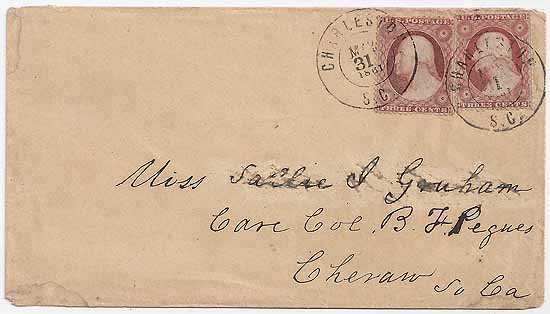 U.S. POSTAGE U.S. POSTAGE
CHARLESTON
31
1861
S.C.
CHARLESTON
1
S.C.
THREE CENTS THREE CENTS
Miss Sallie J Graham
Care Col. B. F. Pegues
Cheraw So Ca